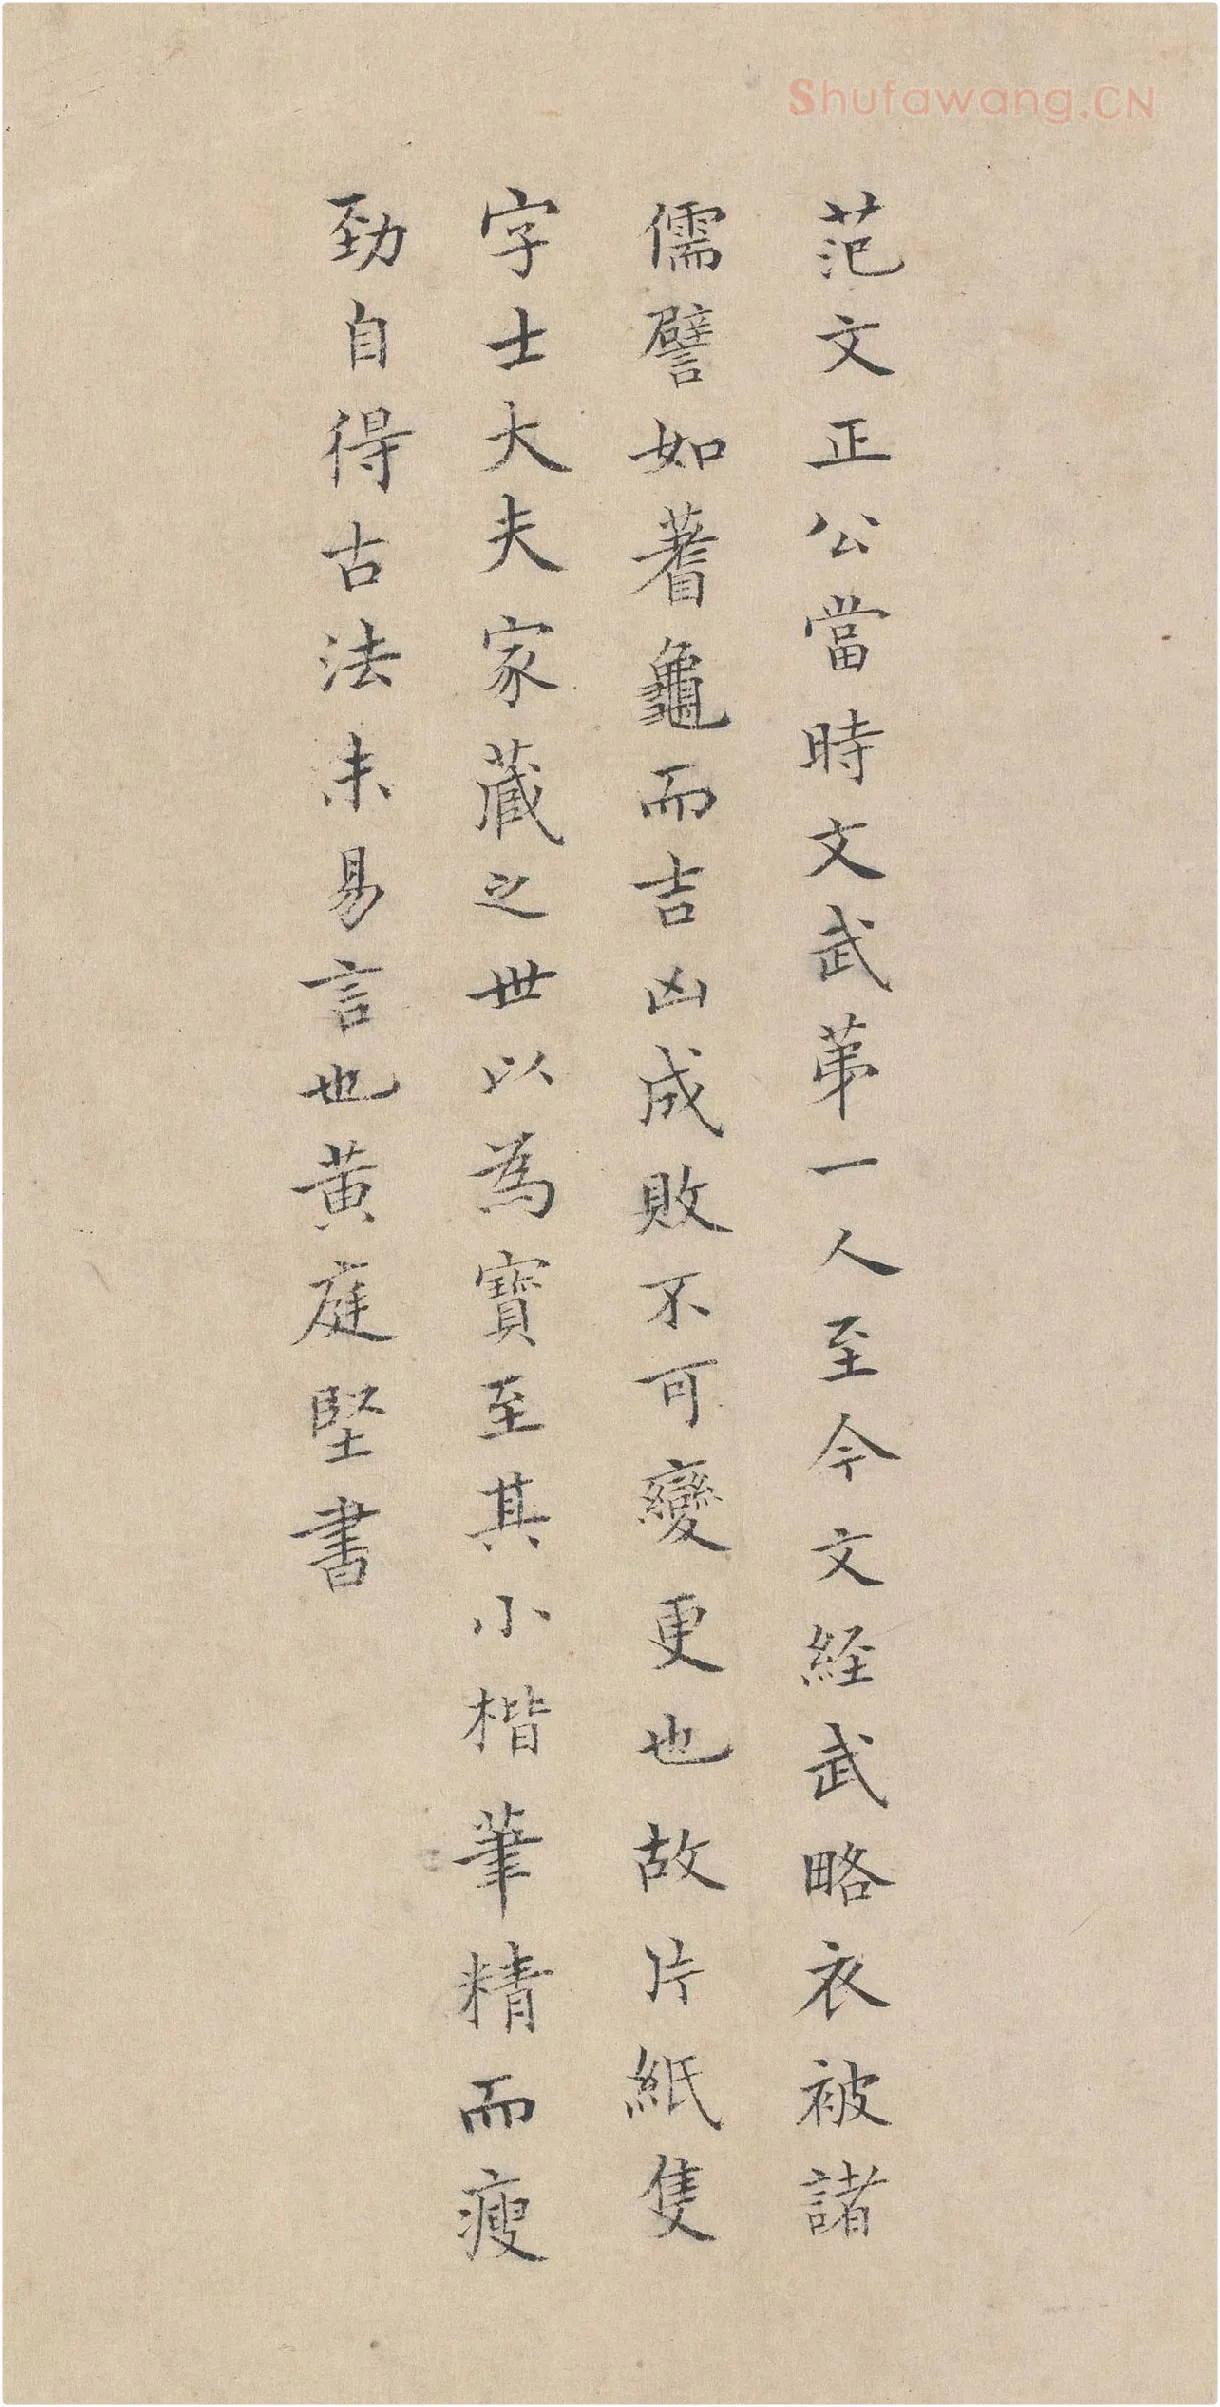 Shufawang.CN
范文正公當時文武苐一人至今文経武略衣被諸
儒譬如蓍龜而吉凶成敗不可變更也故片紙隻
字士大夫家藏之世以為寶至其小楷筆精而瘦
勁自得古法未易言也黄庭堅書